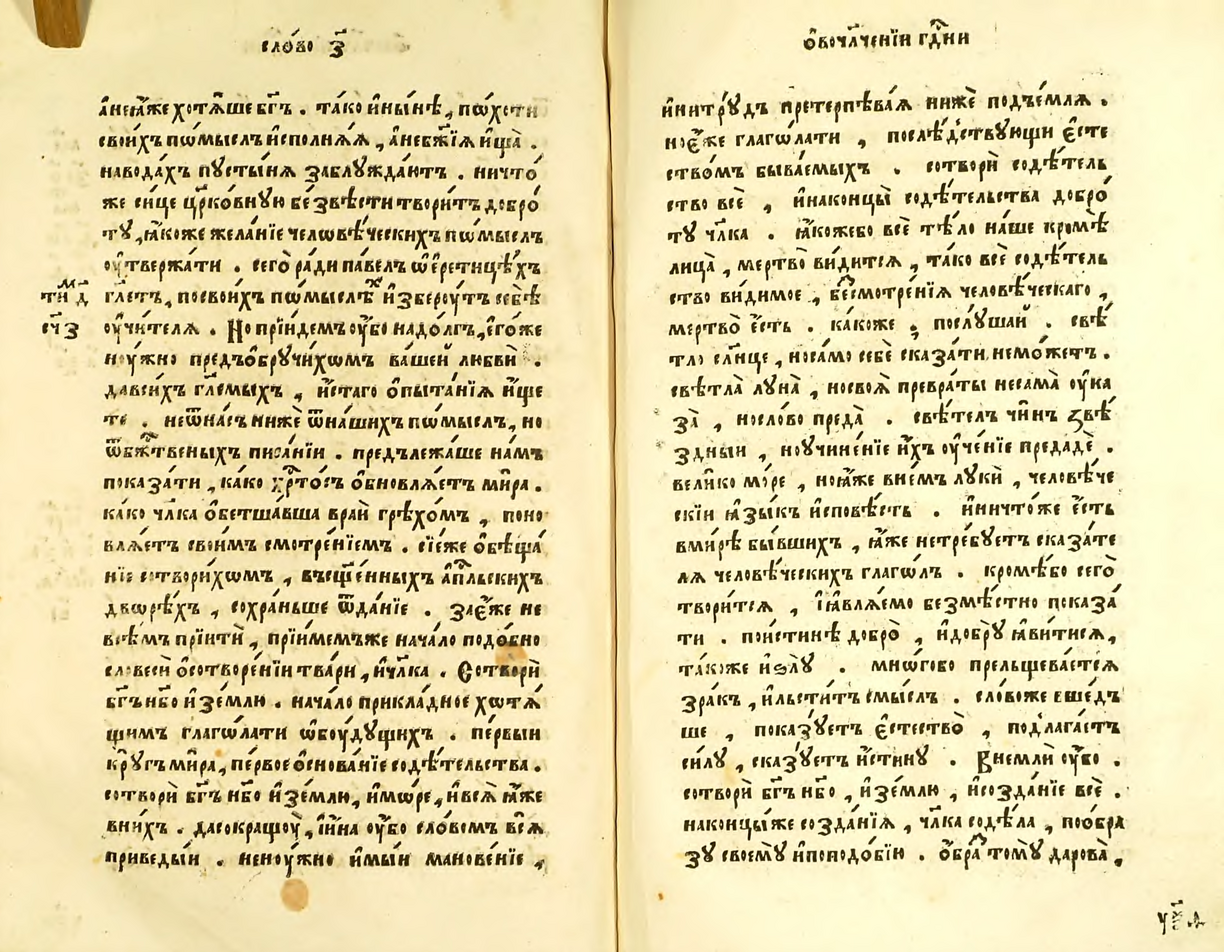 сло́во з҃
а҆неꙗ҆́же хотѧ́ше бг҃ъ . та́ко и҆нн҃ѣ , по́хоти
свои́хъ по́мыслъ и҆сполнѧ́ѧ , а҆небж҃їѧ и҆ща̀ .
навода́хъ пꙋсты́нѧ заблꙋжда́ютъ . ничто́
же си́це цр҃ко́внꙋю безвѣ́сти твори́тъ добро́
тꙋ , ꙗ҆́коже жела́нїе человѣ́ческихъ по́мыслъ
оу҆твержа́ти . сего̀ ра́ди па́велъ ѡ҆ еретицѣ́хъ
гл҃етъ , посвои́хъ по́мыслѣх и҆зберꙋ́тъ себѣ̀
тим д҃
оу҆чи́телѧ . Но прїи́демъ оу҆́бо надо́лгъ , е҆го́же
сч҃ з
нꙋ́жно предъѡбрꙋчи́хомъ ва́шей любвѝ .
давси́хъ гл҃емыхъ , и҆́стаго ѻ҆пыта́нїѧ и҆́ще
те . неѿна́съ ниже ѿна́шихъ по́мыслъ , но
ѿбж҃твеныхъ писа́нїи . предълежа́ше на́мъ
показа́ти , ка́ко хрⷭ҇то́съ ѻ҆бновлѧ́етъ ми́ра .
ка́ко чл҃ка ѻ҆бетша́вша враи́ грѣхо́мъ , поно
влѧ́етъ свои́мъ смотре́нїемъ . сїе́же ѻ҆бѣща́
нїе сотвори́хомъ , въсщ҃е́нныхъ а҆пⷭ҇льскихъ
дво́рѣхъ , сохра́ньше ѿда́нїе . зае҆́же не
всѣ́мъ прїитѝ , прїи́мемъже нача́ло подо́бно
словесѝ ѻ҆сотворе́нїи тва́ри , и҆чл҃ка . Сотворѝ
бг҃ъ нб҃о и҆ зе́млю . нача́ло прикла́дное хотѧ́
щимъ глаго́лати ѡ҆бꙋ́дꙋщихъ . пе́рвыи
крꙋ́гъ ми́ра , пе́рвое ѻ҆снова́нїе содѣ́тельства .
сотворѝ бг҃ъ нб҃о и҆ зе́млю , и҆мо́ре , и҆всѧ̀ ꙗ҆́же
вни́хъ . дасокращꙋ̀ , и҆и́на оу҆́бо сло́вомъ всѧ̀
приведы́и . ненꙋ́жно и҆мы́и манове́нїе ,
ѻ҆вочл҃ченїи гдⷭ҇ни
и҆нитрꙋ́дъ претерпѣва́ѧ ниже подъе́млѧ .
ное҆́же глаго́лати , послѣ́дствꙋющи є҆сте
ство́мъ быва́емыхъ . сотворѝ содѣ́тель
ство всѐ , и҆наконцы̀ содѣ́тельства добро́
тꙋ чл҃ка . ꙗ҆́кожебо всѐ тѣ́ло на́ше кромѣ̀
лица̀ , мертво̀ ви́дитсѧ , та́ко всѐ содѣ́тель
ство ви́димое , бесмотре́нїѧ человѣ́ческаго ,
мертво̀ є҆́сть . ка́коже , послꙋ́шаи . свѣ́
тло сл҃нце , носамо̀ себѐ сказа́ти неможетъ .
свѣтла̀ лꙋна̀ , носвоѧ̀ превра́ты несама̀ оу҆ка
за̀ , носло́во преда̀ . свѣ́телъ чи́нъ ѕвѣ́
здныи , ноучине́нїе и҆́хъ оу҆че́нїе предадѐ .
вели́ко мо́ре , ноꙗ҆́же вне́мъ лꙋкѝ , человѣ́че
скїи ꙗ҆зы́къ и҆сповѣ́сть . и҆ничто́же є҆́сть
вми́рѣ бы́вшихъ , ꙗ҆́же нетре́бꙋетъ сказа́те
лѧ человѣ́ческихъ глаго́лъ . кромѣ́бо сего̀
твори́тсѧ , їꙗ҆влѧ́емо безмѣ́стно показа́
ти . пои́стинѣ добро̀ , и҆добрꙋ̀ ꙗ҆ви́тисѧ ,
та́коже и҆ѕлꙋ̀ . мно́гово прельщева́етсѧ
зра́къ , и҆льсти́тъ смы́слъ . сло́воже вше́дъ
ше , показꙋ́етъ є҆стество̀ , подлага́етъ
си́лꙋ , сказꙋ́етъ и҆́стинꙋ . Внемлѝ оу҆́бо .
сотворѝ бг҃ъ нб҃о , и҆зе́млю , и҆созда́нїе всѐ .
наконцы́же созда́нїѧ , чл҃ка содѣ́ла , пообра
зꙋ своемꙋ̀ и҆поподо́бїю . ѻ҆́бра томꙋ̀ дарова̀ ,